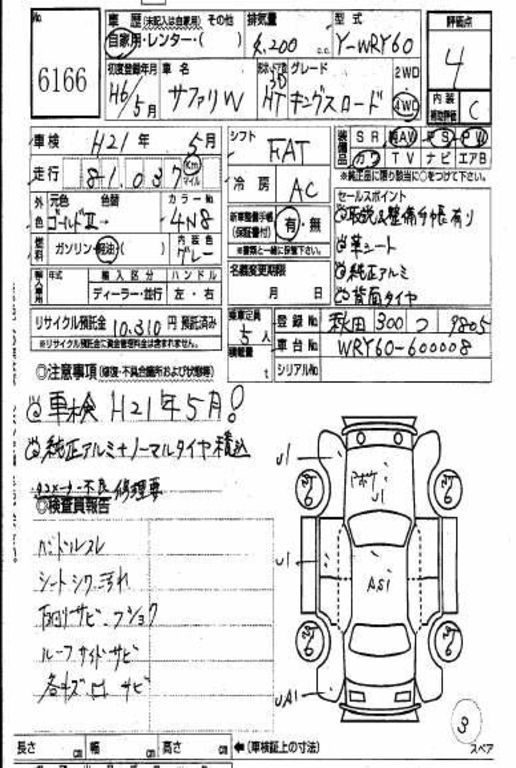 No 6166
車歴 (未記入は自家用) その他
自家用・レンター・( )
排気量 4,200 c.c.
型式 Y-WRY60
評価点 4
内装補助評価 C
初度登録年月 H6/5月
車名 サファリW
形状・ドア数 3D HT
グレード キングスロード
2WD
4WD
車検 H21年 5月
シフト FAT
装備品 SR AW PS PW
カワ TV ナビ エアB
※純正品に限り該当に○をつけて下さい。
走行 81,037 Km マイル
冷房 AC
セールスポイント
①取説&整備手帳有り
②革シート
③純正アルミ
④背面タイヤ
外色 元色 色替 ゴールドII→
カラーNo 4N8
新車整備手帳(保証書付) 有・無
※書類と一緒に保管下さい。
燃料 ガソリン・軽油・( )
内装色 グレー
名義変更期限
月 日
輸入車用 年式 輸入区分 ハンドル
ディーラー・並行 左・右
乗車定員 5人
積載量 t
登録No 秋田 300 つ 9805
車台No WRY60-600008
シリアルNo
リサイクル預託金 10,310円 預託済み
※リサイクル預託金に資金管理料金は含まれません。
◎注意事項 (修復・不具合箇所および状態等)
①車検 H21年5月!
②純正アルミ+ノーマルタイヤ積込
タコメーター不良 修理要
◎検査員報告
ハンドルスレ
シートシワ 汚れ
下回りサビ・フショク
ルーフサイドサビ
各キズ凹 サビ
U1
アトガケ
U1
U1
AS1
UA1
6
6
6
6
3
スペア
長さ cm 幅 cm 高さ cm ←(車検証上の寸法)